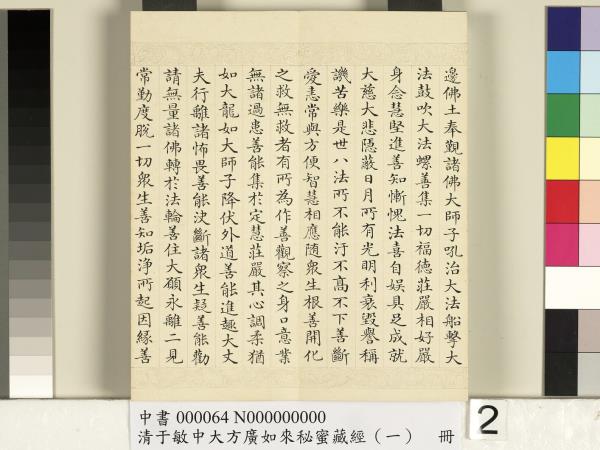 邊佛土奉覲諸佛大師子吼治大法船擊大
法鼓吹大法螺善集一切福德莊嚴相好嚴
身念慧堅進善知慚愧法喜自娛具足成就
大慈大悲隱蔽日月所有光明利衰毀譽稱
譏苦樂是世八法所不能汙不高不下善斷
愛恚常與方便智慧相應隨衆生根善開化
之救無救者有所為作善觀察之身口意業
無諸過患善能集於定慧莊嚴其心調柔猶
如大龍如大師子降伏外道善能進趣大丈
夫行離諸怖畏善能決斷諸衆生疑善能勸
請無量諸佛轉於法輪善住大願永離二見
常勤度脫一切衆生善知垢淨所起因緣善
中書 000064 N000000000
清于敏中大方廣如來秘蜜藏經（一） 冊
2